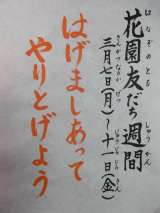 花園友だち週間
三月七日(月)～十一日(金)
はげましあって
やりとげよう